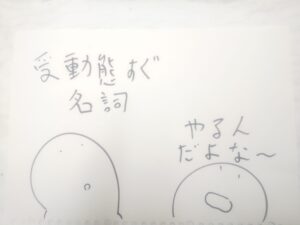 受動態すぐ
名詞
やる人
だよな～